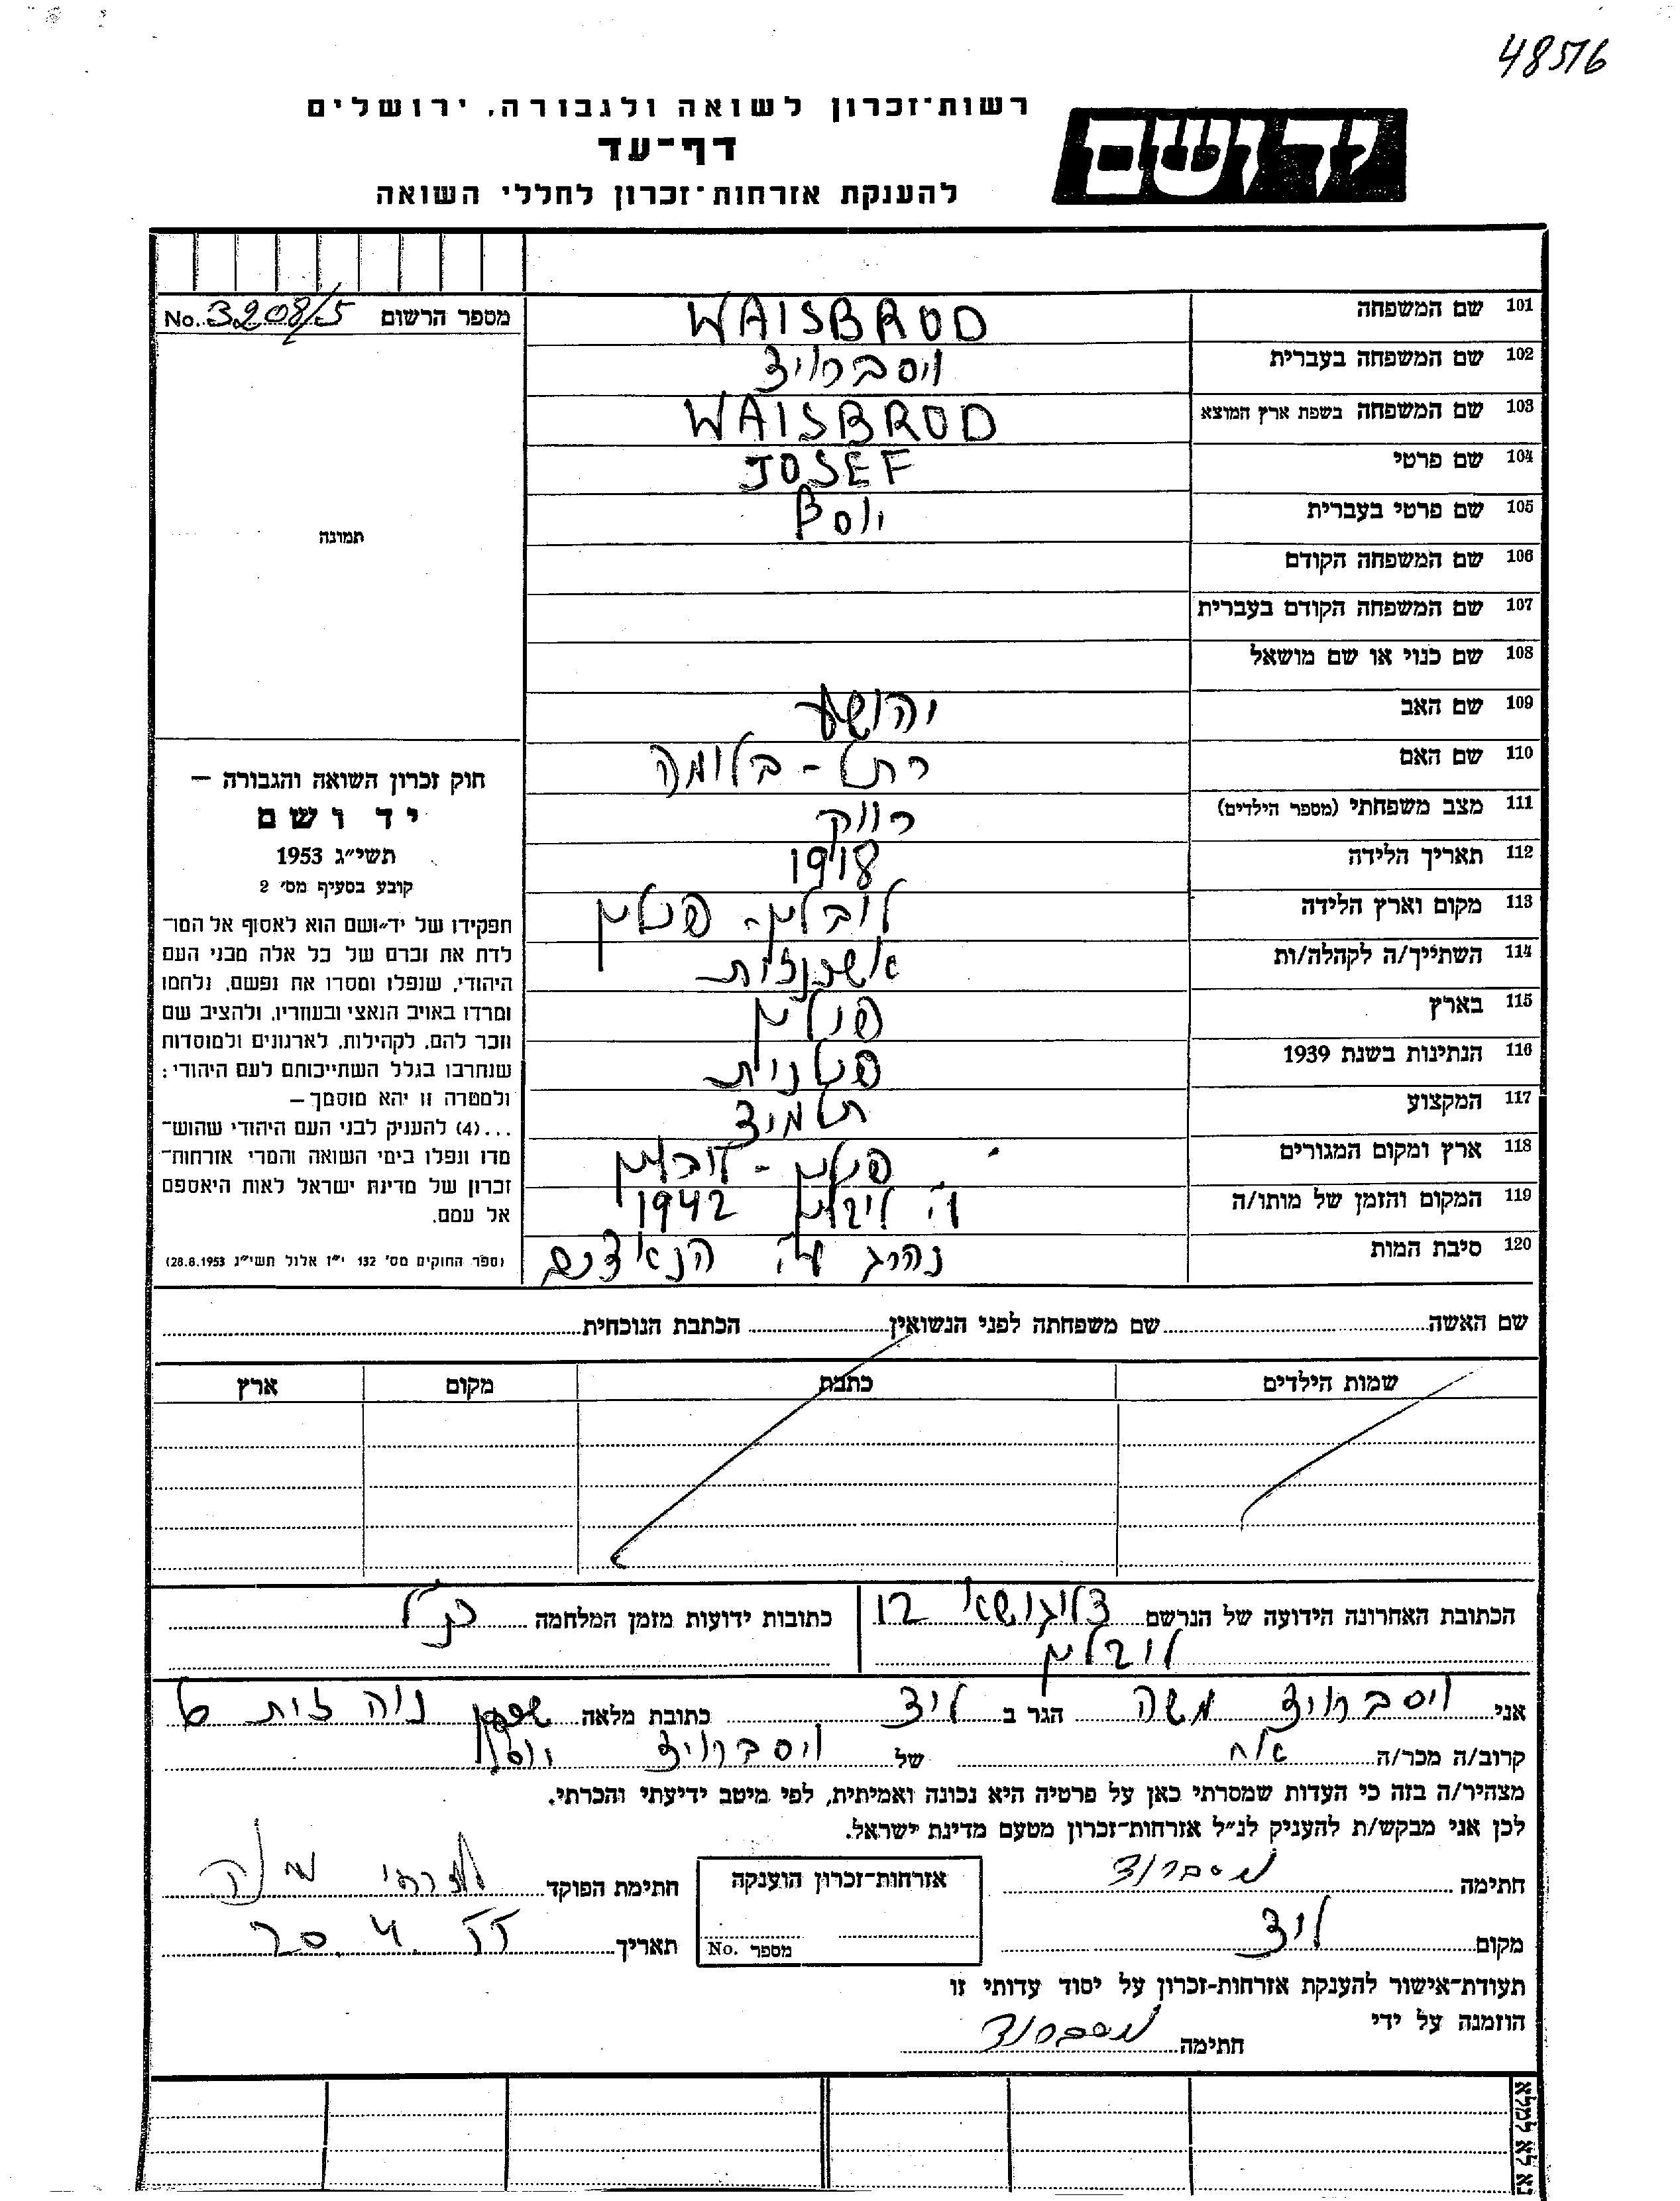 48576
רשות־זכרון לשואה ולגבורה, ירושלים
ידושם
דף־עד
להענקת אזרחות־זכרון לחללי השואה
101 שם המשפחה WAISBROD
מספר הרשום No. 3208/5
102 שם המשפחה בעברית ויסברויד
103 שם המשפחה בשפת ארץ המוצא WAISBROD
104 שם פרטי JOSEF
105 שם פרטי בעברית יוסף
תמונה
106 שם המשפחה הקודם
107 שם המשפחה הקודם בעברית
108 שם כנוי או שם מושאל
109 שם האב יהושע
110 שם האם רחל - בלומה
111 מצב משפחתי (מספר הילדים) רווק
112 תאריך הלידה 1918
113 מקום וארץ הלידה לובלין - פולין
114 השתייך/ה לקהלה/ות אשכנזית
115 בארץ פולין
116 הנתינות בשנת 1939 פולנית
117 המקצוע תלמיד
118 ארץ ומקום המגורים פולין - לובלין
119 המקום והזמן של מותו/ה לובלין 1942
120 סיבת המות נהרג ע"י הנאצים
חוק זכרון השואה והגבורה —
יד ושם
תשי״ג 1953
קובע בסעיף מס׳ 2
תפקידו של יד־ושם הוא לאסוף אל המו־
לדת את זכרם של כל אלה מבני העם
היהודי, שנפלו ומסרו את נפשם, נלחמו
ומרדו באויב הנאצי ובעוזריו, ולהציב שם
וזכר להם, לקהילות, לארגונים ולמוסדות
שנחרבו בגלל השתייכותם לעם היהודי:
ולמטרה זו יהא מוסמך —
...(4) להעניק לבני העם היהודי שהוש־
מדו ונפלו בימי השואה והמרי אזרחות־
זכרון של מדינת ישראל לאות היאספם
אל עמם.
(ספר החוקים מס׳ 132 י״ז אלול תשי״ג 28.8.1953)
שם האשה שם משפחתה לפני הנשואין הכתבת הנוכחית
שמות הילדים כתבת מקום ארץ
הכתובת האחרונה הידועה של הנרשם 12
לובלין
כתובות ידועות מזמן המלחמה כנ"ל
אני ויסברויד משה הגר ב לוד כתובת מלאה נוה זית
קרוב/ה מכר/ה אח של ויסברויד יוסף
מצהיר/ה בזה כי העדות שמסרתי כאן על פרטיה היא נכונה ואמיתית, לפי מיטב ידיעתי והכרתי.
לכן אני מבקש/ת להעניק לנ״ל אזרחות־זכרון מטעם מדינת ישראל.
חתימה ויסברוד
אזרחות־זכרון הוענקה
מספר No.
חתימת הפוקד
מקום לוד
תאריך 20.4.55
תעודת־אישור להענקת אזרחות-זכרון על יסוד עדותי זו
הוזמנה על ידי
חתימה ויסברוד
נא לא למלא